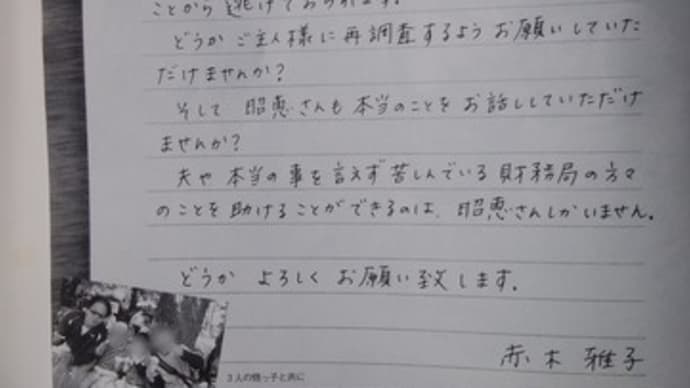 ことから逃げておられます。
どうかご主人様に再調査するようお願いしていた
だけませんか？
そして 昭恵さんも本当のことをお話ししていただけ
ませんか？
夫や本当の事を言えず苦しんでいる財務局の方々
のことを助けることができるのは、昭恵さんしかいません。
どうか よろしく お願い致します。
赤木 雅子
3人の甥っ子と共に